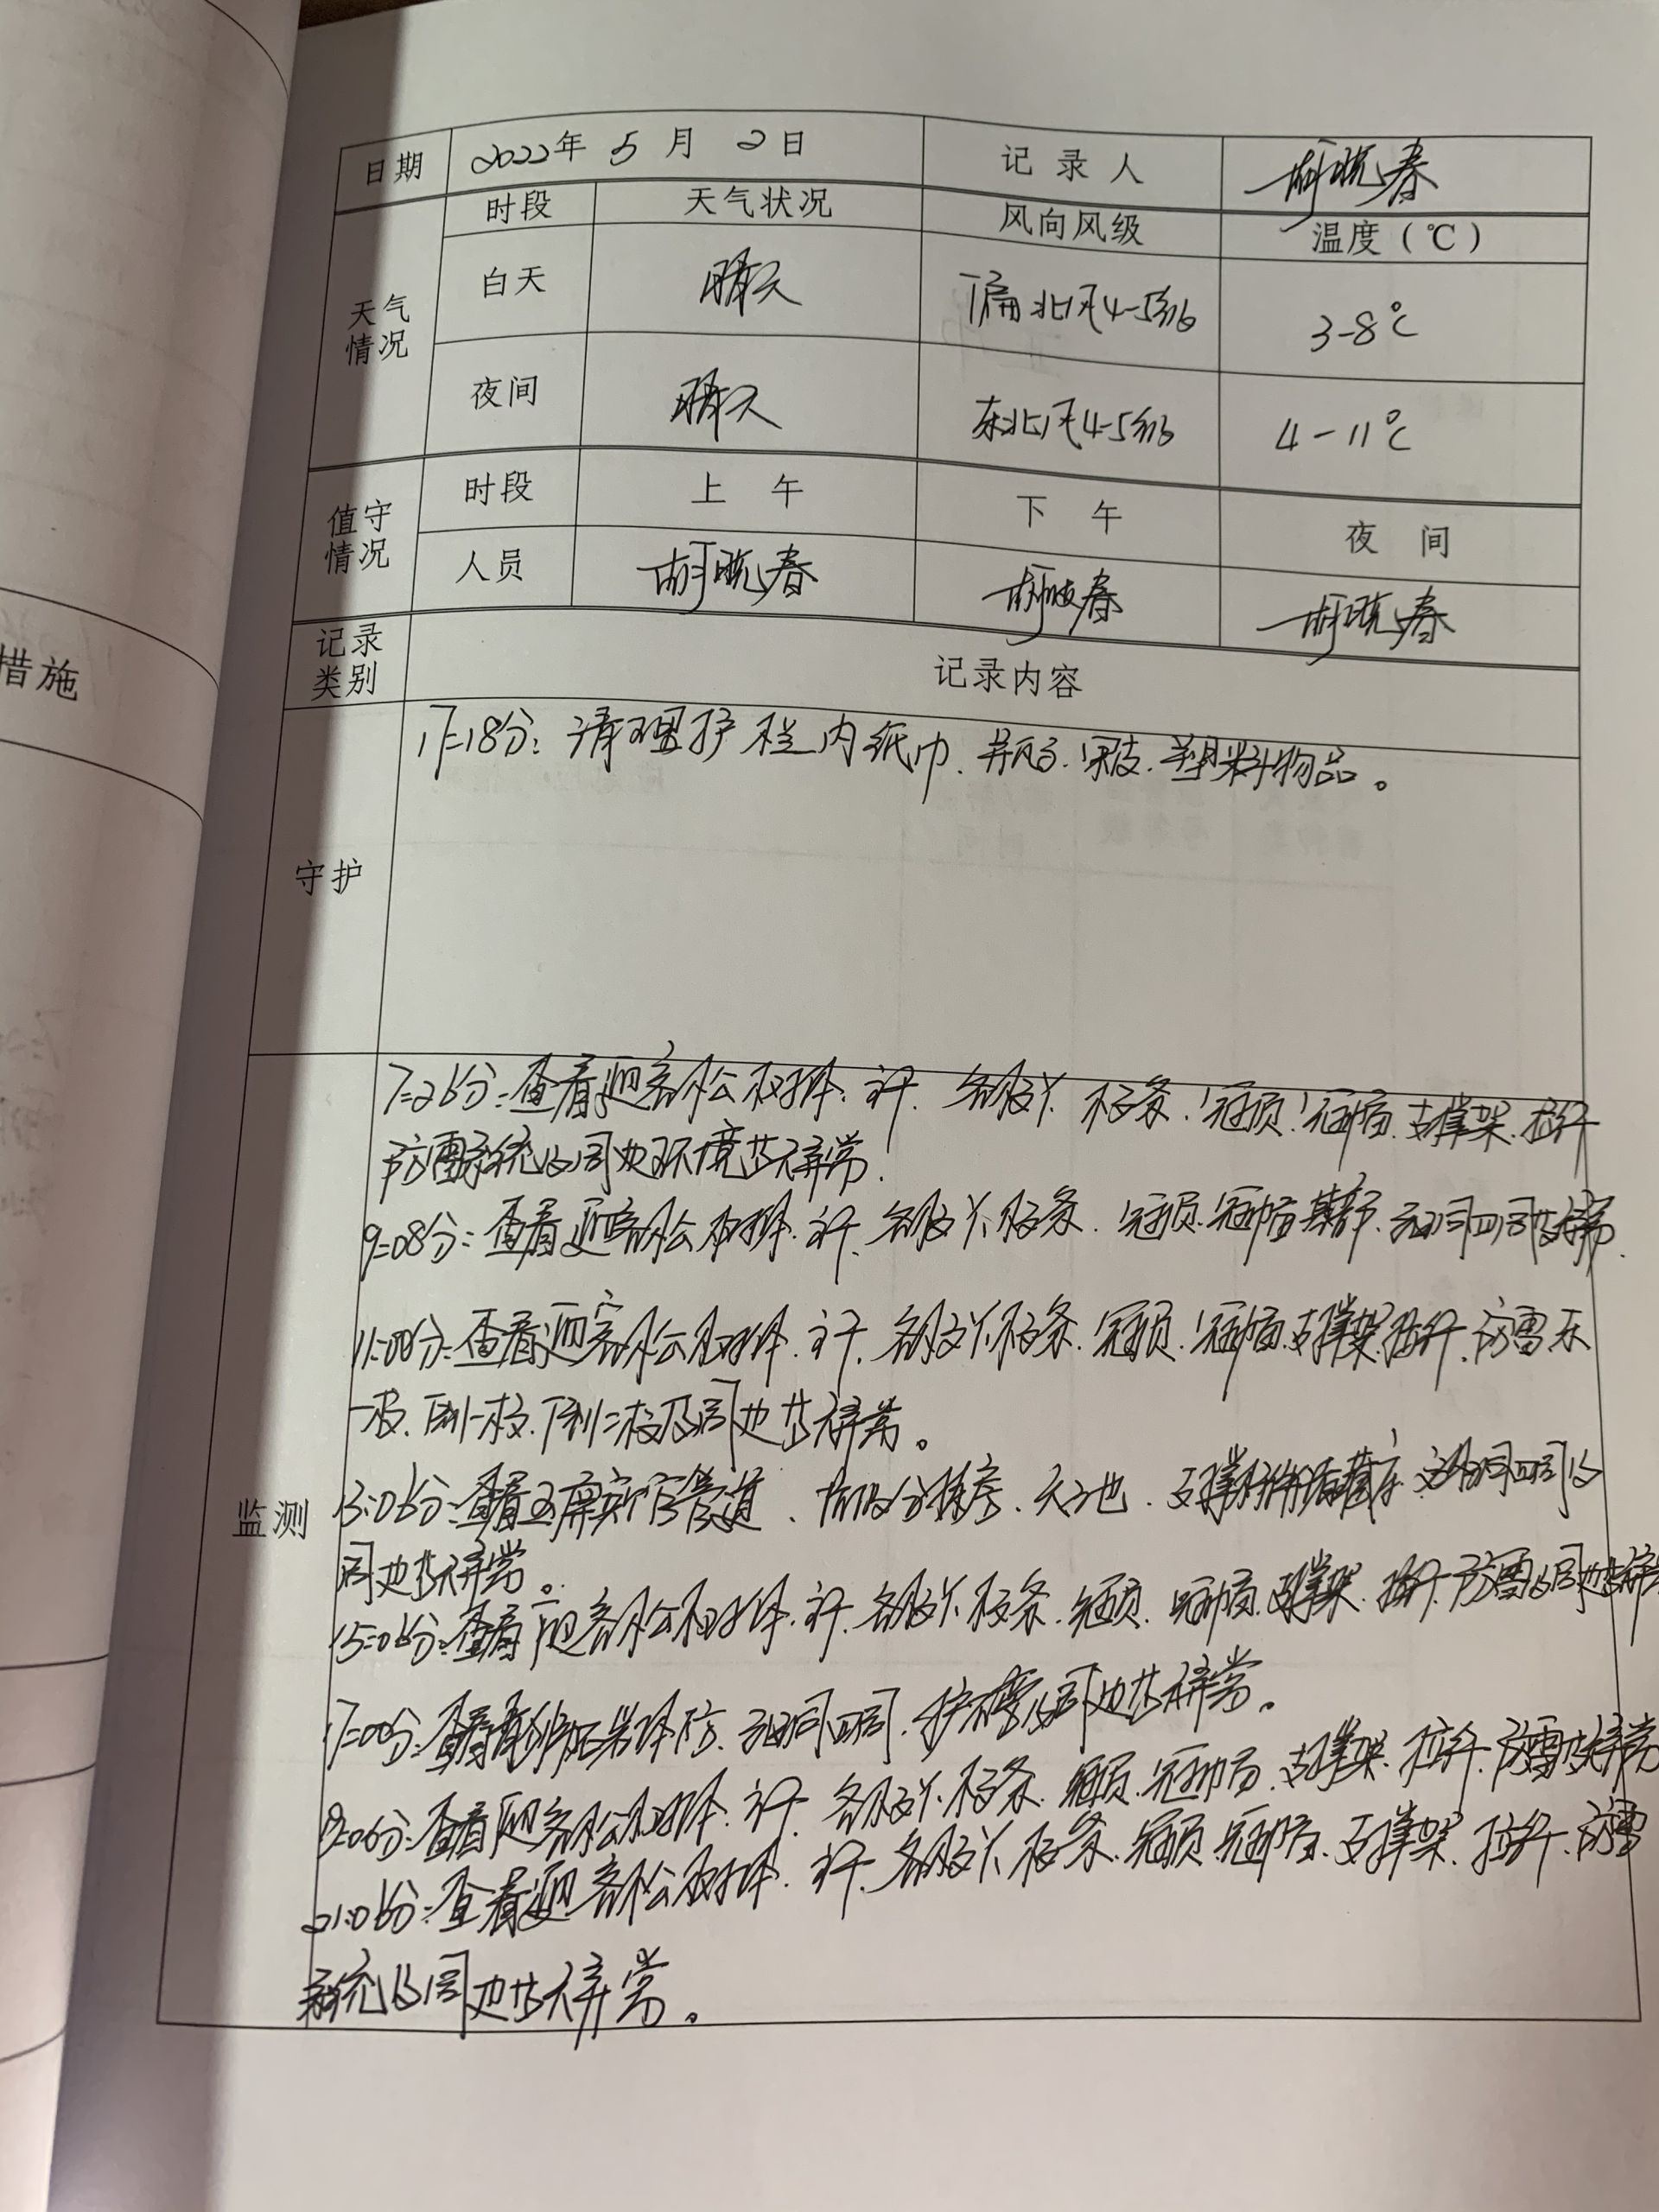 措施
日期 2022年 5 月 2日 记录人 胡晓春
天气情况 时段 天气状况 风向风级 温度(℃)
白天 晴天 偏北风4-5级 3-8℃
夜间 晴天 东北风4-5级 4-11℃
值守情况 时段 上午 下午 夜间
人员 胡晓春 胡晓春 胡晓春
记录类别 记录内容
守护
17=18分: 清理护栏内纸巾、并瓶子、果皮、塑料物品。
监测
7=26分: 查看迎客松树体、主干、各枝丫、枝条、冠顶、冠幅、支撑架、拉纤
防雷系统及周边环境皆无异常.
9=08分: 查看迎客松树体、主干、各枝丫、枝条、冠顶、冠幅、基部、四周皆无异常.
11=00分: 查看迎客松树体、主干、各枝丫、枝条、冠顶、冠幅、支撑架、拉纤、防雷
一枝、下侧二枝及周边皆无异常。
13=06分: 查看玉屏 管道、天地、支撑 四周及
周边皆无异常。
15=06分: 查看迎客松树体、主干、各枝丫、枝条、冠顶、冠幅、支撑架、拉纤、防雷及周边皆无异常
17=00分: 查看 四周、护 及周边皆无异常。
19=06分: 查看迎客松树体、主干、各枝丫、枝条、冠顶、冠幅、支撑架、拉纤、防雷皆无异常
21=06分: 查看迎客松树体、主干、各枝丫、枝条、冠顶、冠幅、支撑架、拉纤、防雷
系统及周边皆无异常。